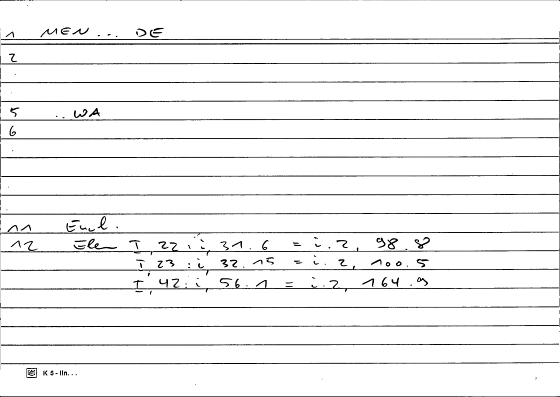 1 MEN... DE
2
5 ..WA
6
11 Eucl.
12 Elem I, 22 : i, 31.6 = i.2, 98.8
I, 23 : i, 32.15 = i.2, 100.5
I, 42 : i, 56.1 = i.2, 164.9
K 5 - lin...